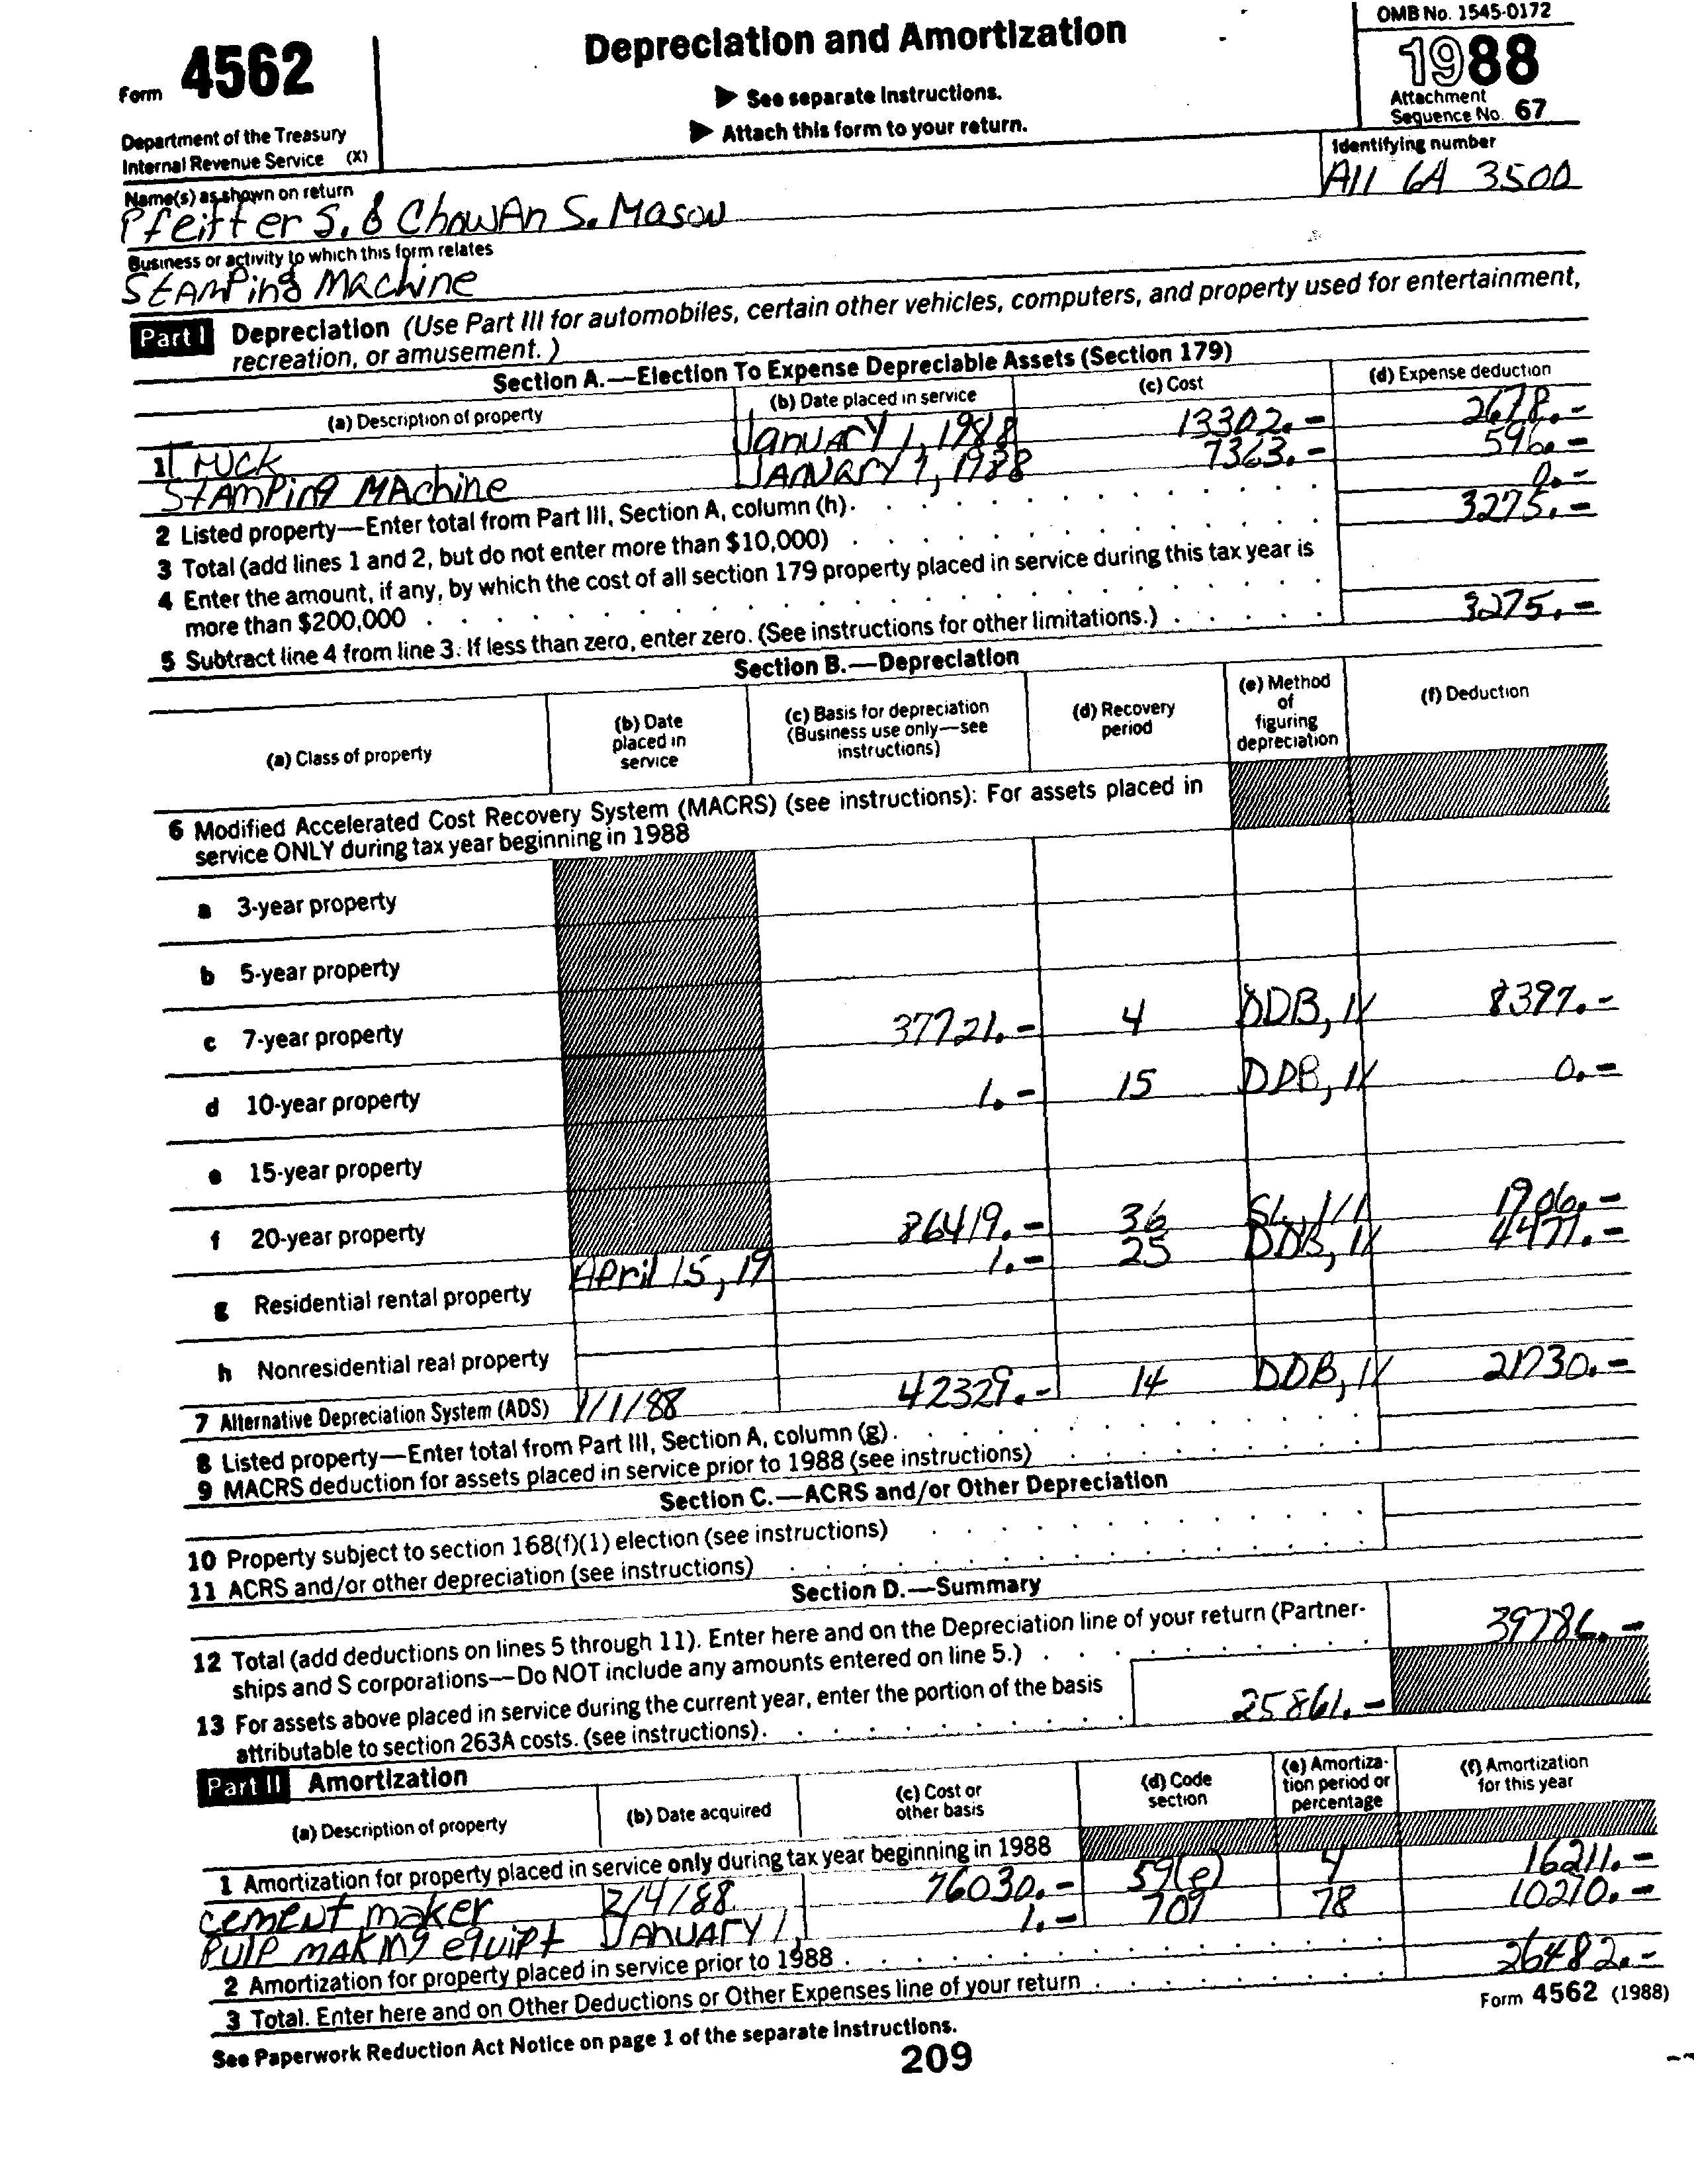 Form 4562
Department of the Treasury
Internal Revenue Service (X)
Depreciation and Amortization
▶ See separate Instructions.
▶ Attach this form to your return.
OMB No. 1545-0172
1988
Attachment
Sequence No. 67
Name(s) as shown on return
Pfeiffer S. & ChowAn S. Mason
Identifying number
A11 6A 3500
Business or activity to which this form relates
StAmPing Machine
Part I Depreciation (Use Part III for automobiles, certain other vehicles, computers, and property used for entertainment,
recreation, or amusement.)
Section A.—Election To Expense Depreciable Assets (Section 179)
(a) Description of property (b) Date placed in service (c) Cost (d) Expense deduction
1 Truck January 1, 1988 13302.- 2678.-
StAmPing MAchine JANuary 1, 1988 7363.- 596.-
2 Listed property—Enter total from Part III, Section A, column (h). 0.-
3 Total (add lines 1 and 2, but do not enter more than $10,000) 3275.-
4 Enter the amount, if any, by which the cost of all section 179 property placed in service during this tax year is
more than $200,000
5 Subtract line 4 from line 3. If less than zero, enter zero. (See instructions for other limitations.) 3275.-
Section B.—Depreciation
(a) Class of property (b) Date placed in service (c) Basis for depreciation (Business use only—see instructions) (d) Recovery period (e) Method of figuring depreciation (f) Deduction
6 Modified Accelerated Cost Recovery System (MACRS) (see instructions): For assets placed in
service ONLY during tax year beginning in 1988
a 3-year property
b 5-year property
c 7-year property 37721.- 4 DDB, 1/ 8397.-
d 10-year property 1.- 15 DDB, 1/ 0.-
e 15-year property
f 20-year property 86419.- 36 SL, 1/1 1906.-
g Residential rental property April 15, 19 1.- 25 DDB, 1/ 4477.-
h Nonresidential real property
7 Alternative Depreciation System (ADS) 1/1/88 42329.- 14 DDB, 1/ 21730.-
8 Listed property—Enter total from Part III, Section A, column (g).
9 MACRS deduction for assets placed in service prior to 1988 (see instructions)
Section C.—ACRS and/or Other Depreciation
10 Property subject to section 168(f)(1) election (see instructions)
11 ACRS and/or other depreciation (see instructions)
Section D.—Summary
12 Total (add deductions on lines 5 through 11). Enter here and on the Depreciation line of your return (Partner-
ships and S corporations—Do NOT include any amounts entered on line 5.) 39786.-
13 For assets above placed in service during the current year, enter the portion of the basis
attributable to section 263A costs. (see instructions). 25861.-
Part II Amortization
(a) Description of property (b) Date acquired (c) Cost or other basis (d) Code section (e) Amortization period or percentage (f) Amortization for this year
1 Amortization for property placed in service only during tax year beginning in 1988
cement maker 2/4/88 76030.- 59(e) 4 16211.-
Pulp making equipt JANUARY 1, 1.- 709 78 10270.-
2 Amortization for property placed in service prior to 1988
3 Total. Enter here and on Other Deductions or Other Expenses line of your return 26482.-
See Paperwork Reduction Act Notice on page 1 of the separate instructions.
Form 4562 (1988)
209